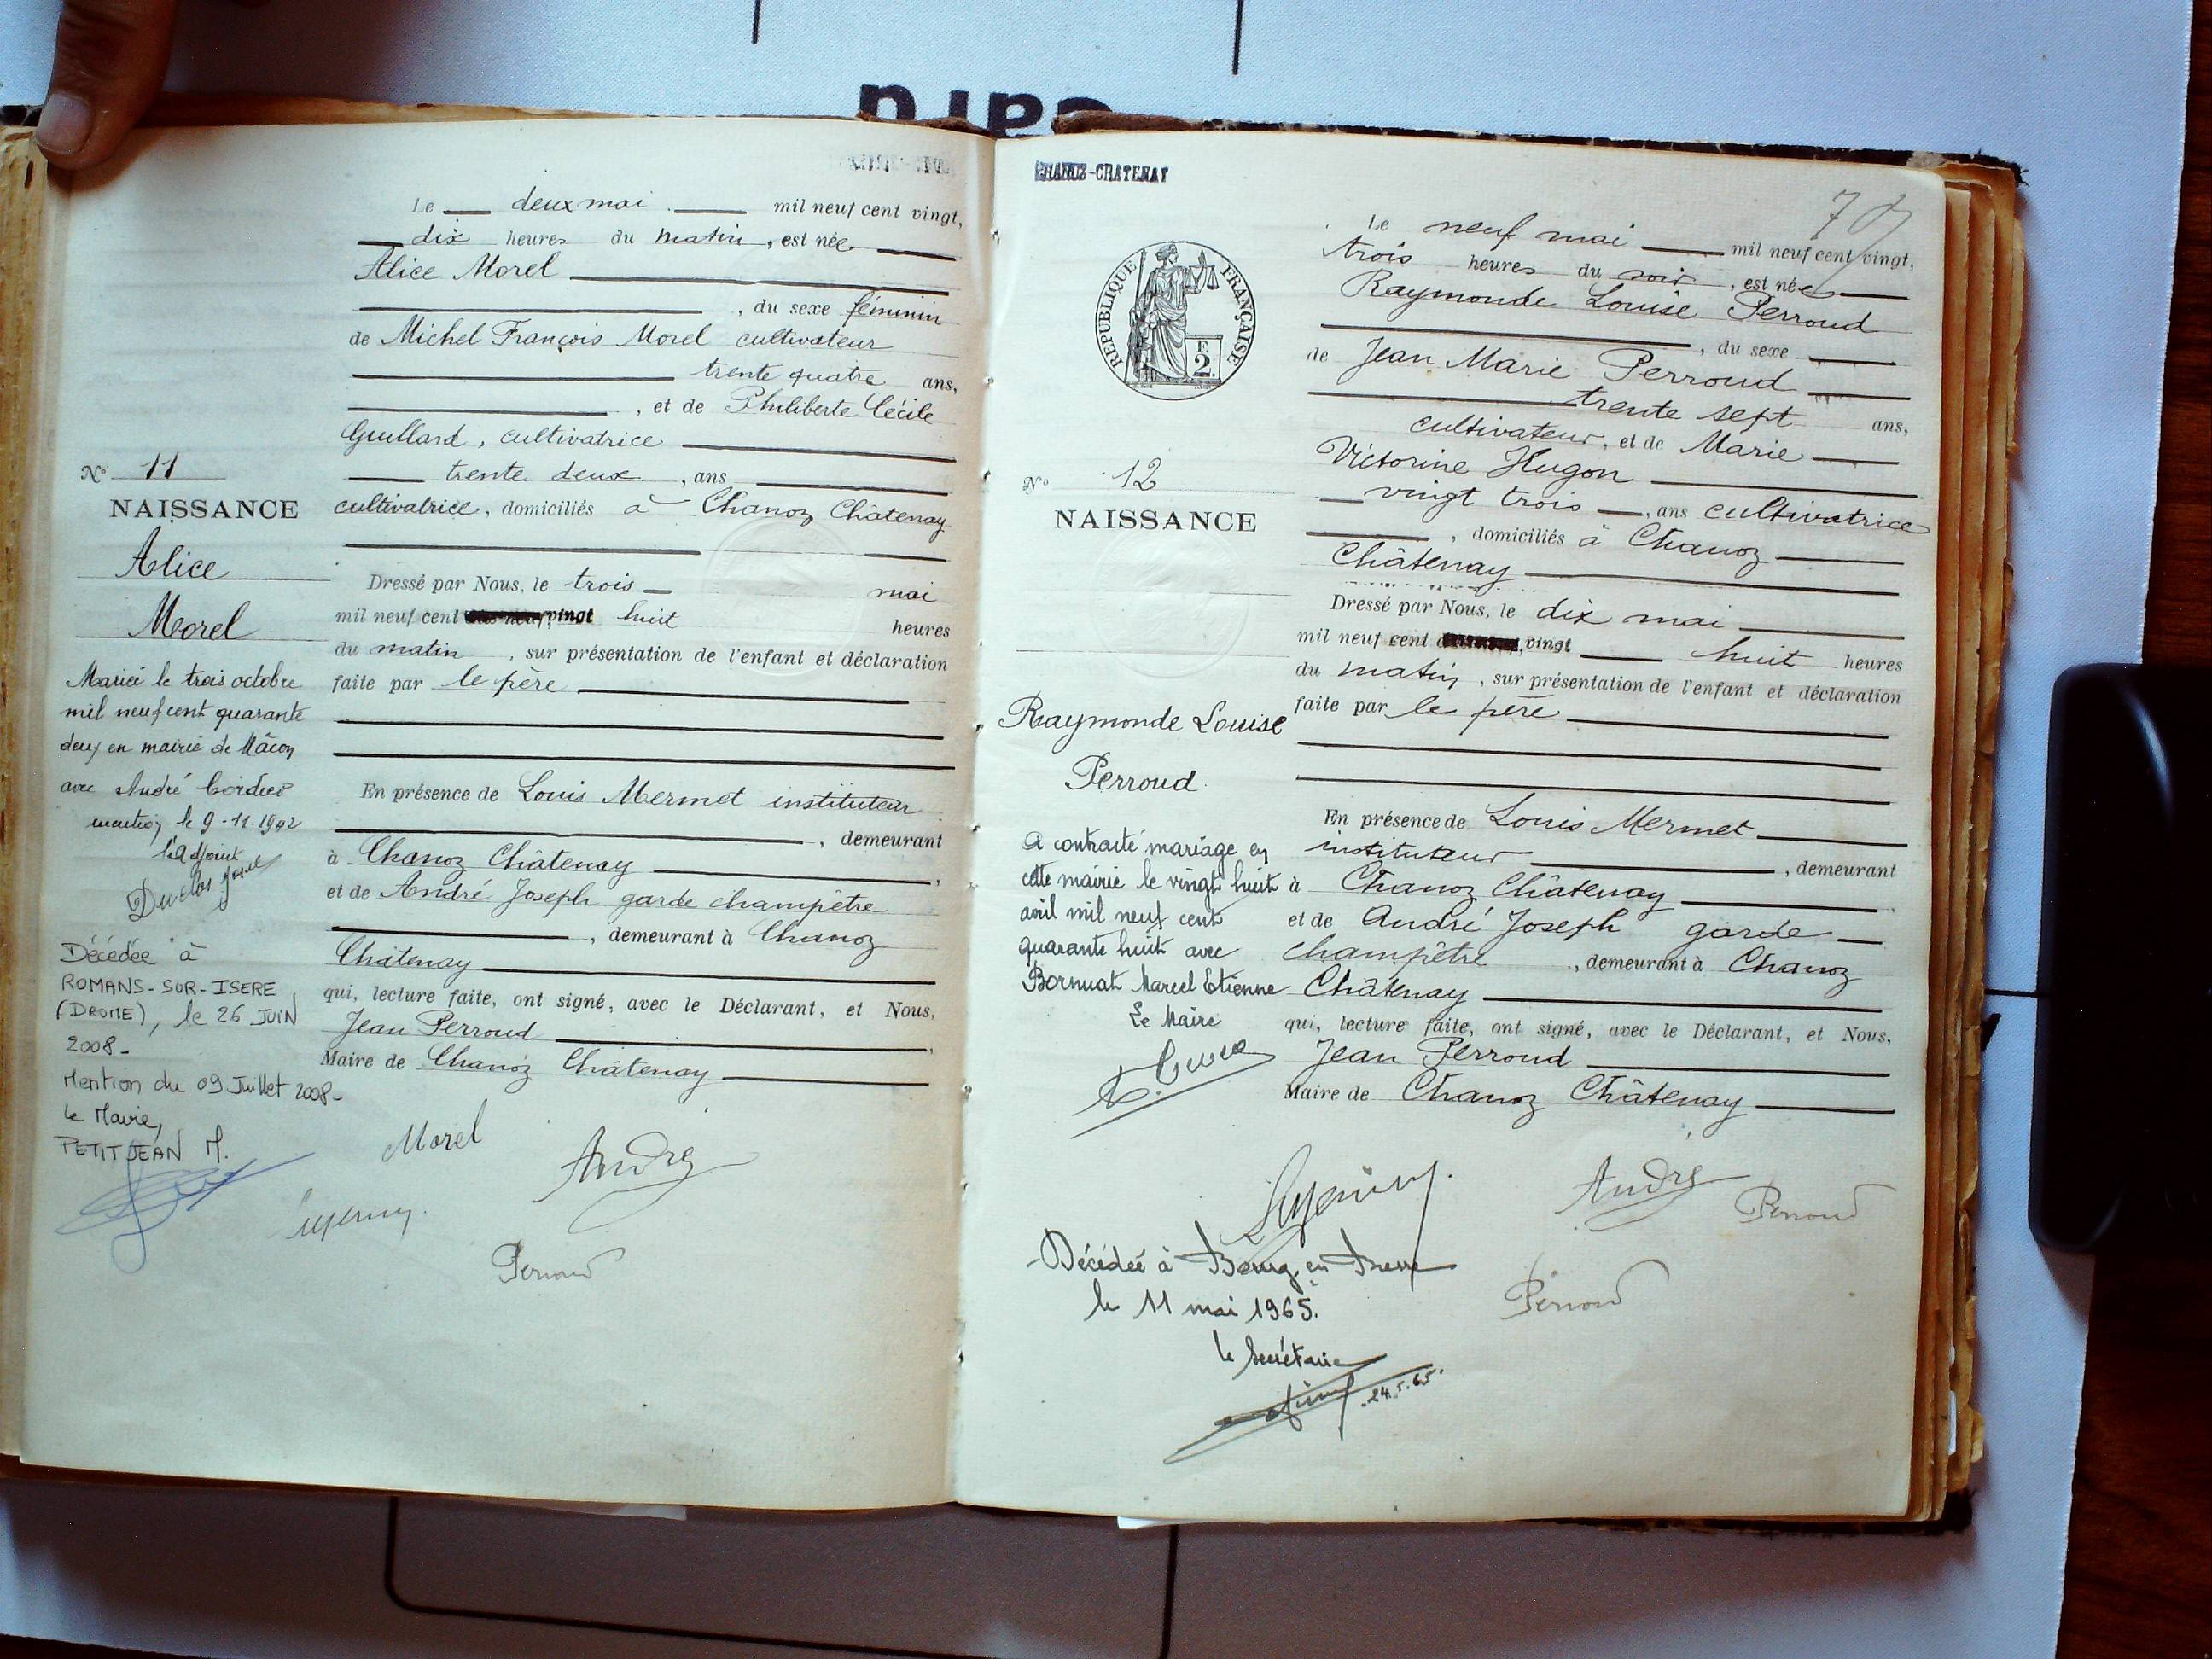 Le deux mai mil neuf cent vingt,
dix heures du matin, est née
Alice Morel
, du sexe féminin
de Michel François Morel cultivateur
trente quatre ans,
, et de Philiberte Cécile
Guillard, cultivatrice
trente deux, ans
cultivatrice, domiciliés à Chanoz Châtenay
Dressé par Nous, le trois mai
mil neuf cent vingt huit heures
du matin, sur présentation de l'enfant et déclaration
faite par le père
En présence de Louis Mermet instituteur
, demeurant
à Chanoz Châtenay,
et de André Joseph garde champêtre
, demeurant à Chanoz
Châtenay
qui, lecture faite, ont signé, avec le Déclarant, et Nous,
Jean Perroud,
Maire de Chanoz Châtenay
Morel
André
Perroud
No 11
NAISSANCE
Alice
Morel
Mariée le trois octobre
mil neuf cent quarante
deux en mairie de Mâcon
avec André Cordier
mention le 9-11-1942
l'adjoint
Décédée à
ROMANS-SUR-ISERE
(DROME), le 26 JUIN
2008-
Mention du 09 Juillet 2008-
Le Maire,
PETITJEAN M.
CHANOZ-CHATENAY
RÉPUBLIQUE FRANÇAISE
F.
2.
Le neuf mai mil neuf cent vingt,
trois heures du soir, est née
Raymonde Louise Perroud
, du sexe
de Jean Marie Perroud
trente sept ans,
cultivateur, et de Marie
Victorine Hugon
vingt trois, ans cultivatrice
, domiciliés à Chanoz
Châtenay
Dressé par Nous, le dix mai
mil neuf cent vingt huit heures
du matin, sur présentation de l'enfant et déclaration
faite par le père
En présence de Louis Mermet
instituteur, demeurant
à Chanoz Châtenay
et de André Joseph garde
champêtre, demeurant à Chanoz
Châtenay
qui, lecture faite, ont signé, avec le Déclarant, et Nous,
Jean Perroud
Maire de Chanoz Châtenay
No 12
NAISSANCE
Raymonde Louise
Perroud.
A contracté mariage en
cette mairie le vingt huit
avril mil neuf cent
quarante huit avec
Bornuat Marcel Etienne
Le Maire
André
Perroud
Perroud
Décédée à Bourg en Bresse
le 11 mai 1965.
le Secrétaire
24.5.65.